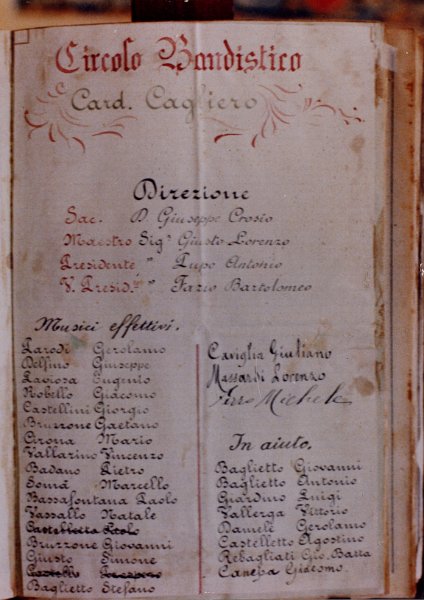 Circolo Bandistico
Card. Cagliero
Direzione
Sac. D. Giuseppe Crosio
Maestro Sig.r Giusto Lorenzo
Presidente " Lupo Antonio
V. Presid.te " Fazio Bartolomeo
Musici effettivi.
Parodi Gerolamo
Delfino Giuseppe
Laviosa Eugenio
Robello Giacomo
Castellini Giorgio
Bruzzone Gaetano
Girona Mario
Vallarino Vincenzo
Badano Pietro
Somà Marcello
Bassafontana Paolo
Vassallo Natale
Castelletto
Bruzzone Giovanni
Giusto Simone
Baglietto Stefano
Caviglia Giuliano
Massardi Lorenzo
Ferro Michele
In aiuto.
Baglietto Giovanni
Baglietto Antonio
Giardino Luigi
Vallerga Vittorio
Damele Gerolamo
Castelletto Agostino
Rebagliati Gio. Batta
Canepa Giacomo.